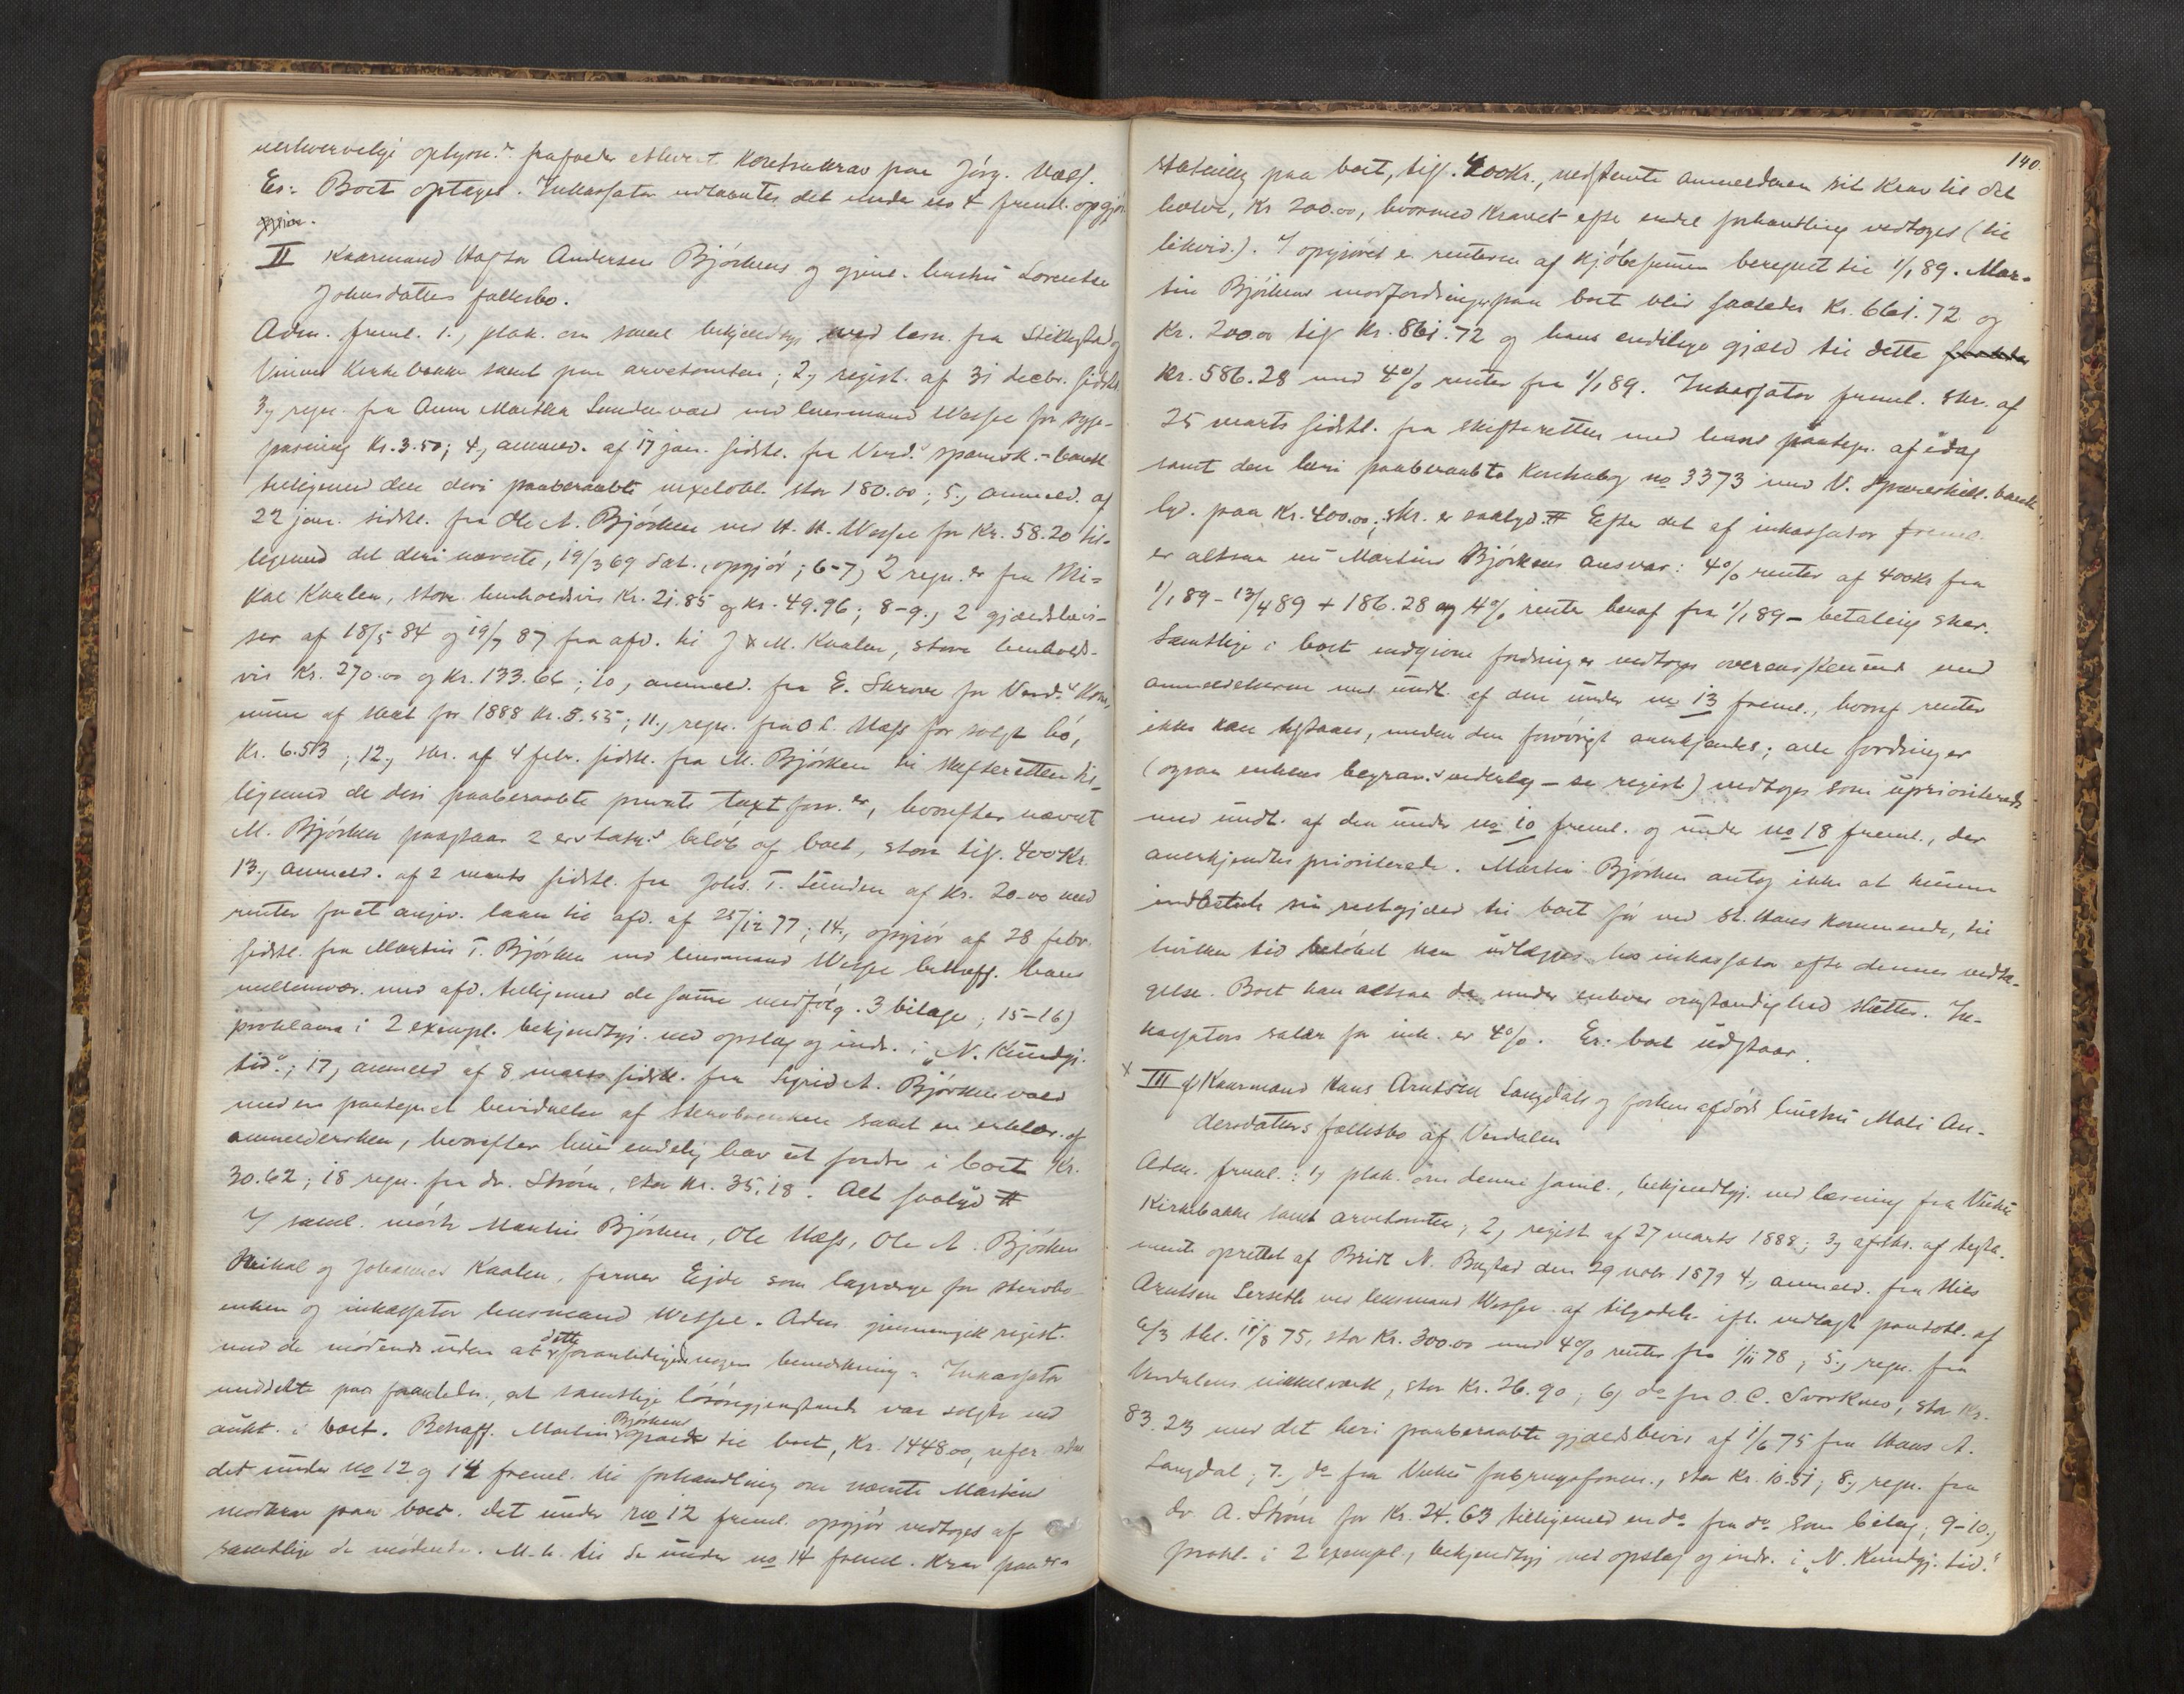 uerhvervelige oplysn.r frafaldes ethvert Konstrakrav paa Jörg. Næss.
Er: Boet optages. Inkassator udlaantes det under no 4 freml. opgjör
II Kaarmand Hafstor Andersen Björkens og gjenl. hustru Lorentse
Johnsdatters fællesbo.
Adm. freml. 1., plak. om saml. bekjendtgj. ved læsn. fra Stiklestad og
Vinnes Kirkebakke samt paa arvetomten; 2, regist. af 31 decbr. sidstl.
3, regn. fra Anne Martha Sundenvald ved lensmand Wessel for syge-
pasning Kr. 3.50; 4, anmeld. af 17 jan. sidstl. fra Verd.s sparesk.-bank
tilligemed den deri paaberaabte vexelobl. stor 180.00; 5., anmeld. af
22 jan. sidstl. fra Ole A. Björken ved H. H. Wessel for Kr. 58.20 til-
ligemed det deri nævnte, 19/3 69 dat., opgjör; 6-7, 2 regn.er fra Mi-
kal Kvalen, store henholdsvis Kr. 21.85 og Kr. 49.96; 8-9., 2 gjældsbevi-
ser af 18/5 84 og 19/7 87 fra afd. til J & M. Kvalen, store henholds-
vis Kr. 270.00 og Kr. 133.66; 10, anmeld. fra E. Skrove for Verd.s Kom-
mune af skat for 1888 Kr. 5.55; 11., regn. fra O. L. Næss for solgt hö,
Kr. 6.53; 12., skr. af 4 febr. sidstl. fra M. Björken til skifteretten til-
ligemed de deri paaberaabte private taxtforr.er, hvorefter nævnt
M. Björken paastaar 2 erstatn.s belöb af boet, store tils. 400 Kr.
13., anmeld. af 2 marts sidstl. fra Johs. T. Sunden af Kr. 20.00 med
renter for et angiv. laan til afd. af 25/12 77; 14., opgjör af 28 febr.
sidstl. fra Martin T. Björken ved lensmand Wessel betræff. hans
mellemvær. med afd. tilligemed de samme medfölg. 3 bilage; 15-16)
proklama i 2 exempl. bekjendtgj. ved opslag og indr. i „N. Kundgj.
tid."; 17, anmeld af 8 marts sidstl. fra Sigrid A. Björkenvald
med en paategnet bevidnelse af sterboenken samt en erklær. af
anmeldersken, hvorefter hun endelig har at fordre i boet Kr.
30.62; 18 regn. fra dr. Ström, stor Kr. 35.18. Alt saalyd #
I saml. mödte Martin Björken, Ole Næss, Ole A. Björken
Mikal og Johannes Kvalen, farver Ejde som lagværge for sterbo-
enken og inkassator lensmand Wessel. Adm. gjennemgik regist.
med de mödende uden at dette foranledigede nogen bemerkning. Inkassator
meddelte paa foranledn., at samtlige lösöregjenstande var solgte ved
aukt. i boet. Betræff. Martin Björkens gjæld til boet, Kr. 1448.00, refer. adm
det under no 12 og 14 freml. til forhandling om nævnte Martin
modkrav paa boet. Det under no 12 freml. opgjör vedtoges af
samtlige de mödende. M. h. til de under no 14 freml. krav paa er-
140.
statning paa boet, tils. 400 Kr., nedstemte anmelderen sit krav til det
halve, Kr 200.00, hvormed kravet efter endel forhandling vedtoges (til
likvid.). I opgjöret er renterne af Kjöbesummen beregnet til 1/1 89. Mar-
tin Björkens modfordringer paa boet blir saaledes Kr. 661.72 og
Kr. 200.00 tils Kr. 861.72 og hans endelige gjæld til dette
Kr. 586.28 med 4% renter fra 1/1 89. Inkassator freml. skr. af
25 marts sidstl. fra skifteretten med hans paategn. af idag
samt den heri paaberaabte Kontrabog no 3373 med V. Spareskill. bank
lyd. paa Kr. 400.00; skr. er saalyd. # Efter det af inkassator freml.
er altsaa nu Martin Björkens ansvar: 4% renter af 400 kr fra
1/1 89 - 13/4 89 + 186.28 og 4% rente heraf fra 1/1 89 - betaling sker.
Samtlige i boet indgivne fordringer vedtoges overensstemmende med
anmeldelserne med undt. af den under no 13 freml., hvoraf renter
ikke kan tilstaaes, medens den forövrigt anerkjendes; alle fordringer
(ogsaa enkens begrav.s vederlag - se regist) vedtoges som uprioriterede
med undt. af den under no 10 freml. og under no 18 freml., der
anerkjendtes prioriterede. Martin Björken antog ikke at kunne
indbetale sin restgjæld til boet för ved St. Hans kommende, til
hvilken tid belöbet kan udlægges hos inkassator efter dennes vedta-
gelse. Boet kan altsaa da under enhver omstændighed sluttes. In-
kassators salær for ink. er 4%. Er: boet udstaar.
x III f Kaarmand Hans Arntsen Langdals og forhen afdöde hustru Mali An-
dersdatters fællesbo af Verdalen
Adm. freml.: 1, plak. om denne saml., bekjendtgj. ved læsning fra Vuku
Kirkebakke samt arvetomten; 2, regist af 27 marts 1888; 3, afskr. af testa-
mente oprettet af Bridt N. Bagstad den 29 novbr. 1879 4, anmeld. fra Nils
Arntsen Lerseth ved lensmand Wessel af tilgodeh. ifl. vedlagt pantobl. af
6/3 thl. 11/8 75, stor Kr. 300.00 med 4% renter fra 1/11 78; 5., regn. fra
Verdalens nikkelværk, stor Kr. 26.90; 6, do fra O. C. Svorkmo, stor Kr.
83.23 med det heri paaberaabte gjældsbevis af 1/6 75 fra Hans A.
Langdal; 7., do fra Vuku forbrugsforen., stor Kr. 10.51; 8, regn. fra
dr. A. Ström for Kr. 24.63 tilligemed en do fra do som bilag; 9-10.,
prokl. i 2 exempl., bekjendtgj ved opslag og indr. i „N. Kundgj. tid."